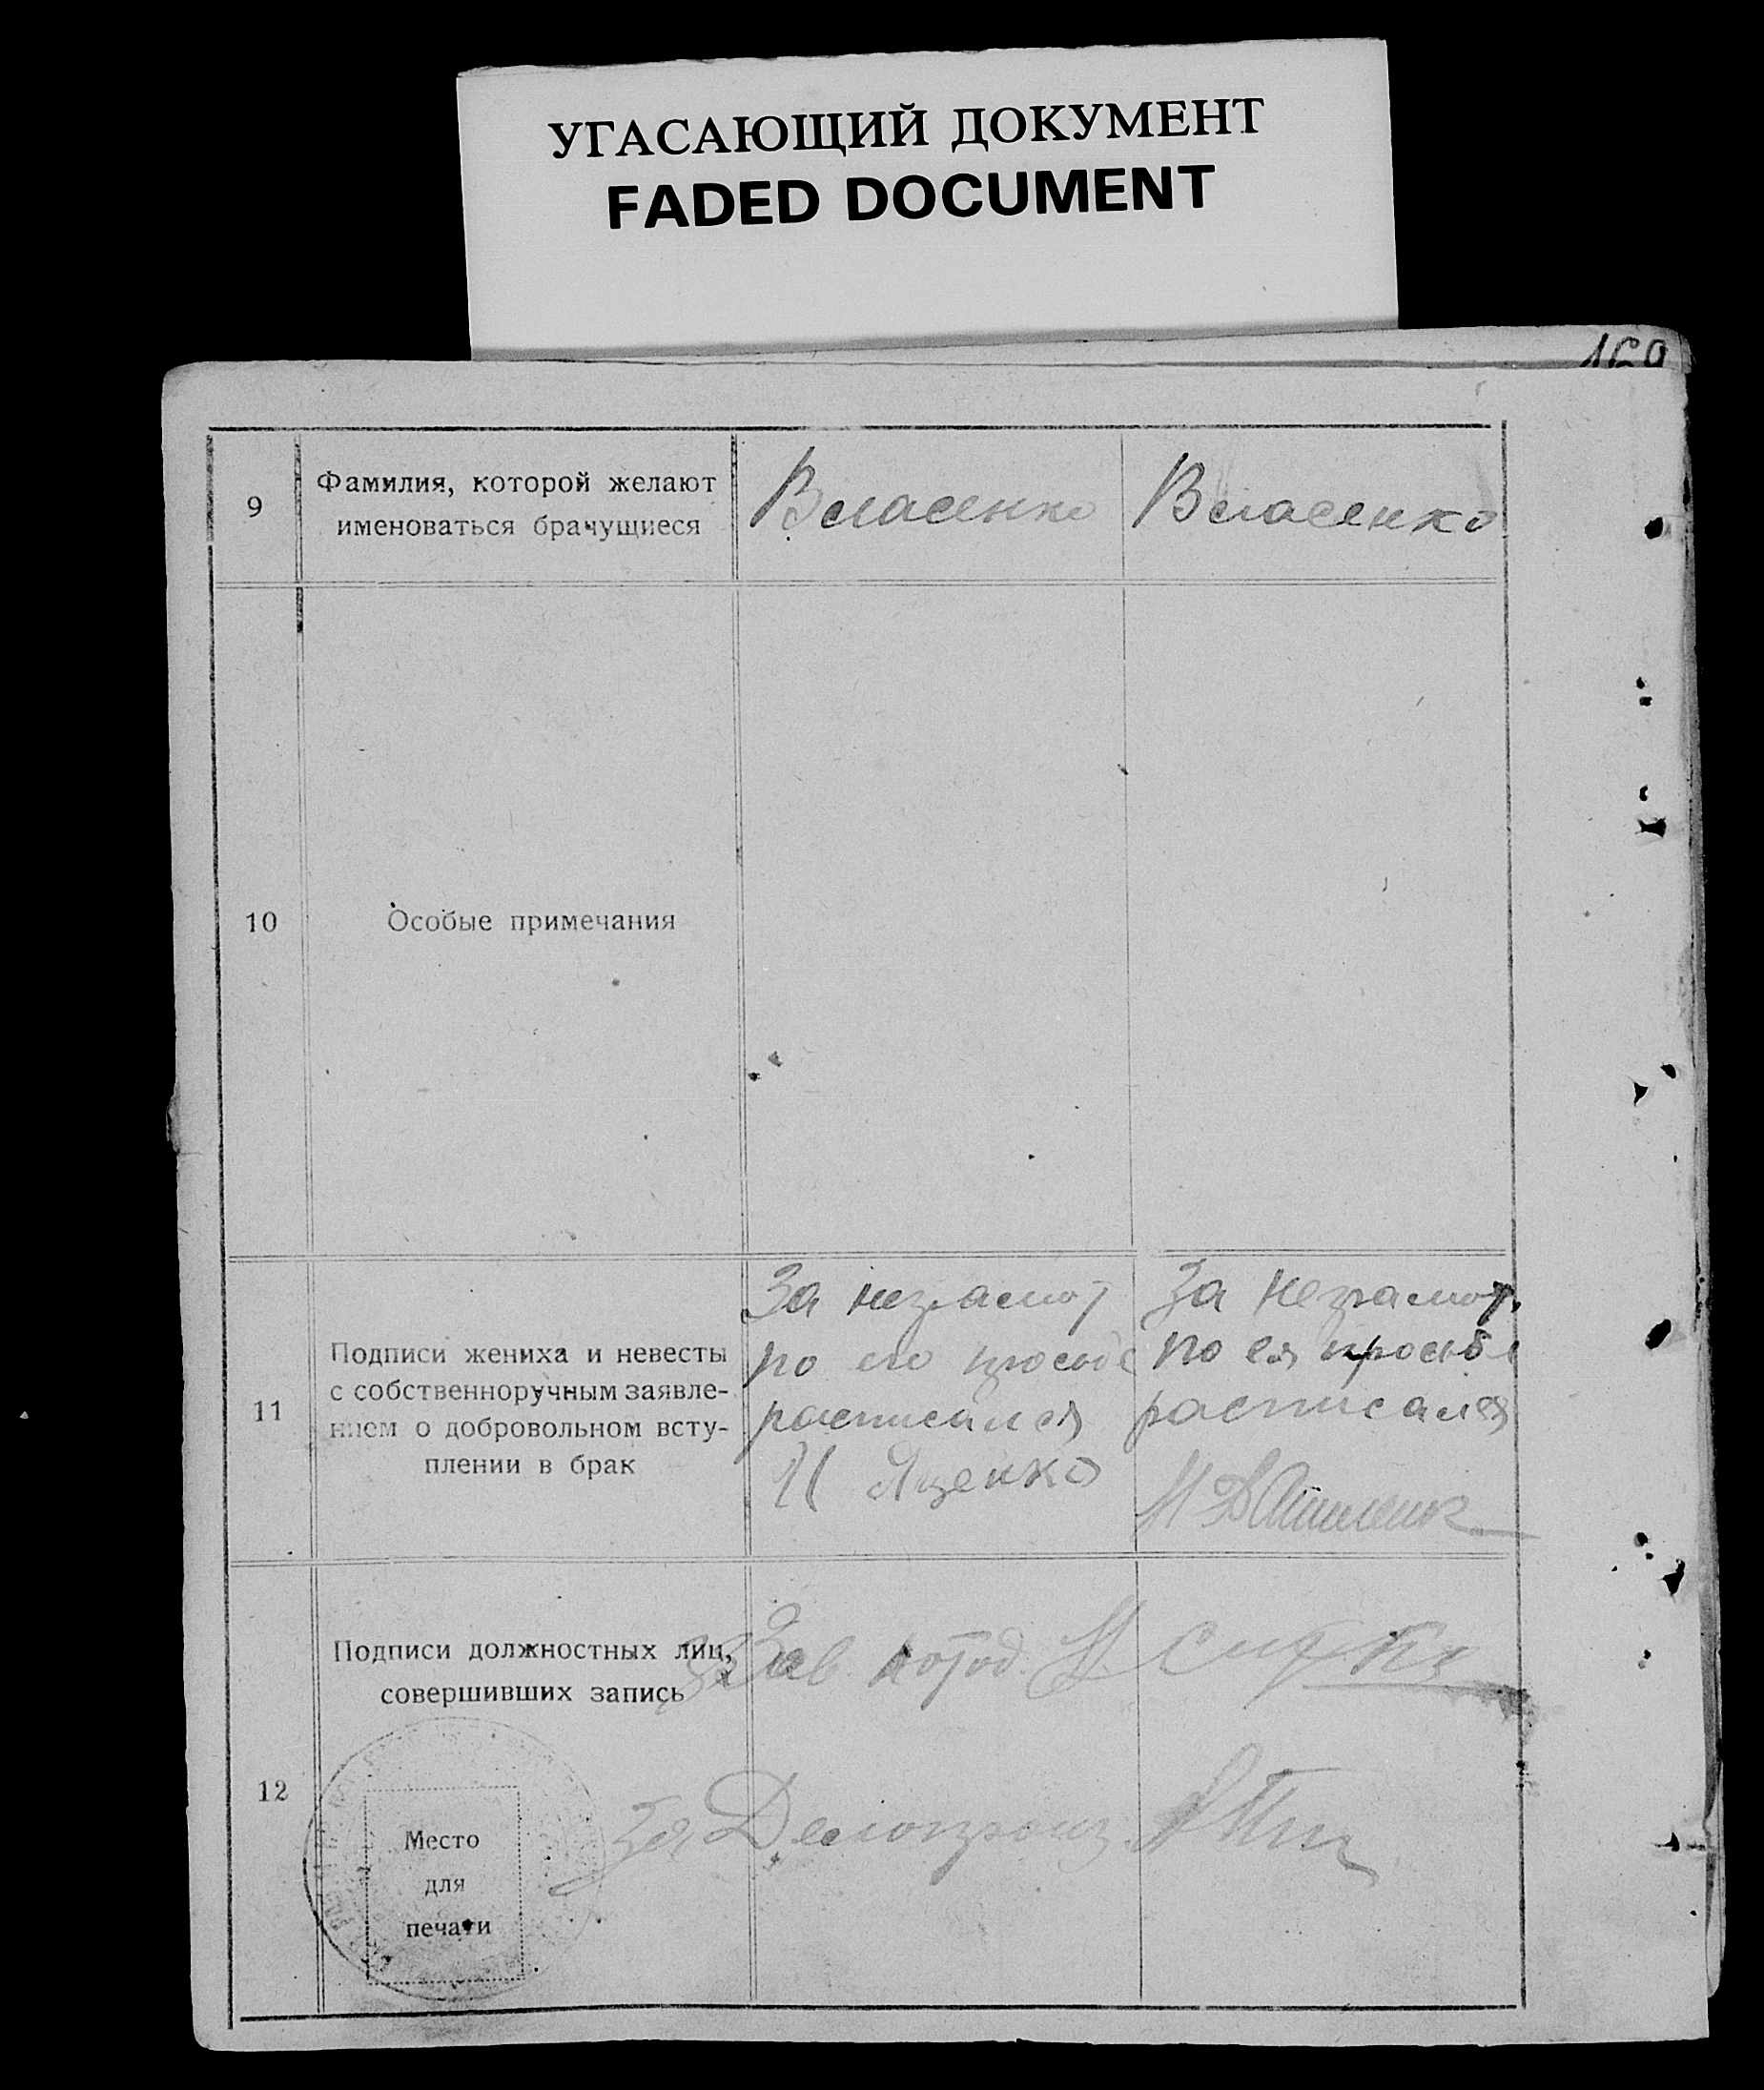 УГАСАЮЩИЙ ДОКУМЕНТ
FADED DOCUMENT
169
9
Фамилия, которой желают
именоваться брачущиеся
Власенко
Власенко
10
Особые примечания
11
Подписи жениха и невесты
с собственноручным заявле-
нием о добровольном всту-
плении в брак
За неграмот
по его просьбе
расписался
И Яценко
За неграмот.
по ея просьбе
расписался
12
Подписи должностных лиц,
совершивших запись
Зав
За Делопроиз
Место
для
печати